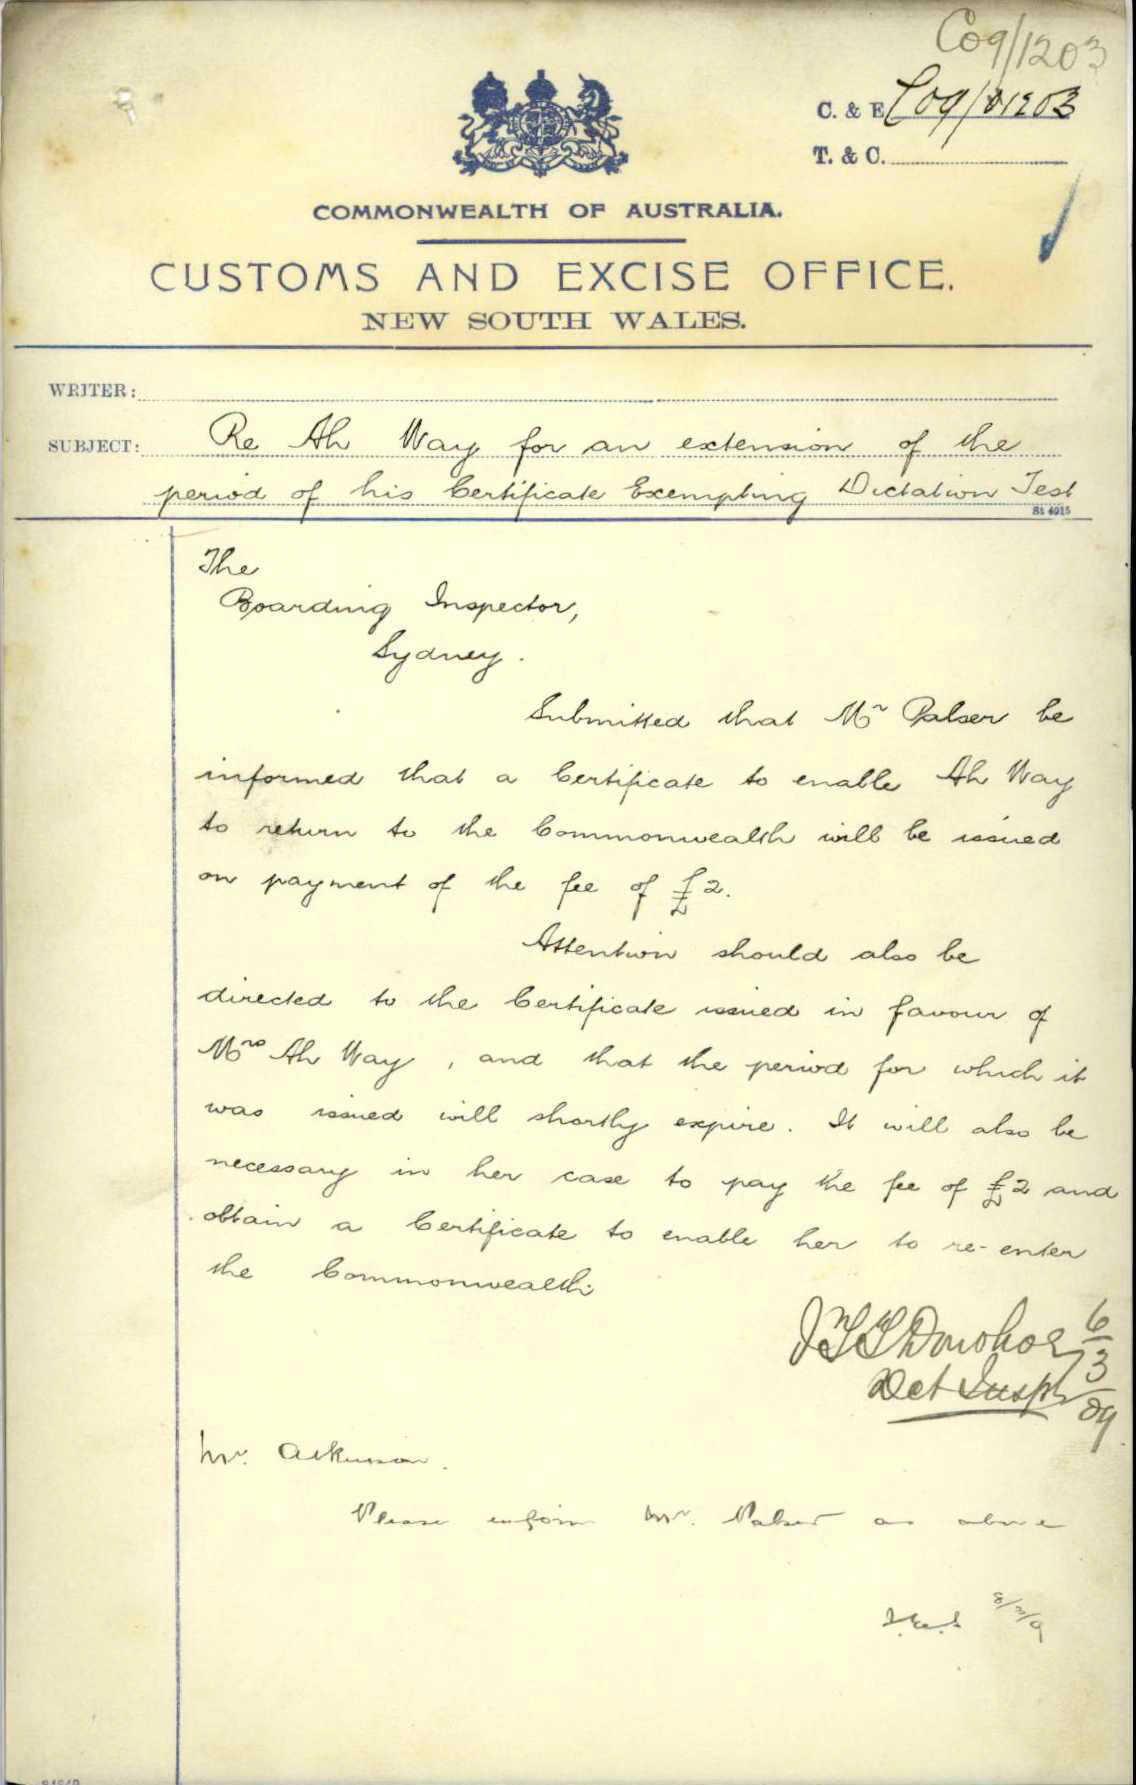 Co9/1203
C. & E. Co9/01203
T. & C.
COMMONWEALTH OF AUSTRALIA.
CUSTOMS AND EXCISE OFFICE.
NEW SOUTH WALES.
WRITER:
SUBJECT: Re Ah Way for an extension of the
period of his Certificate Exempting Dictation Test
St 4915
The
Boarding Inspector,
Sydney.
Submitted that Mr Palser be
informed that a Certificate to enable Ah Way
to return to the Commonwealth will be issued
on payment of the fee of £2.
Attention should also be
directed to the Certificate issued in favour of
Mrs Ah Way, and that the period for which it
was issued will shortly expire. It will also be
necessary in her case to pay the fee of £2 and
obtain a Certificate to enable her to re-enter
the Commonwealth.
J T T Donohoe 6/3/09
Det Inspr
Mr. Atkinson.
Please inform Mr. Palser as above
8/3/9